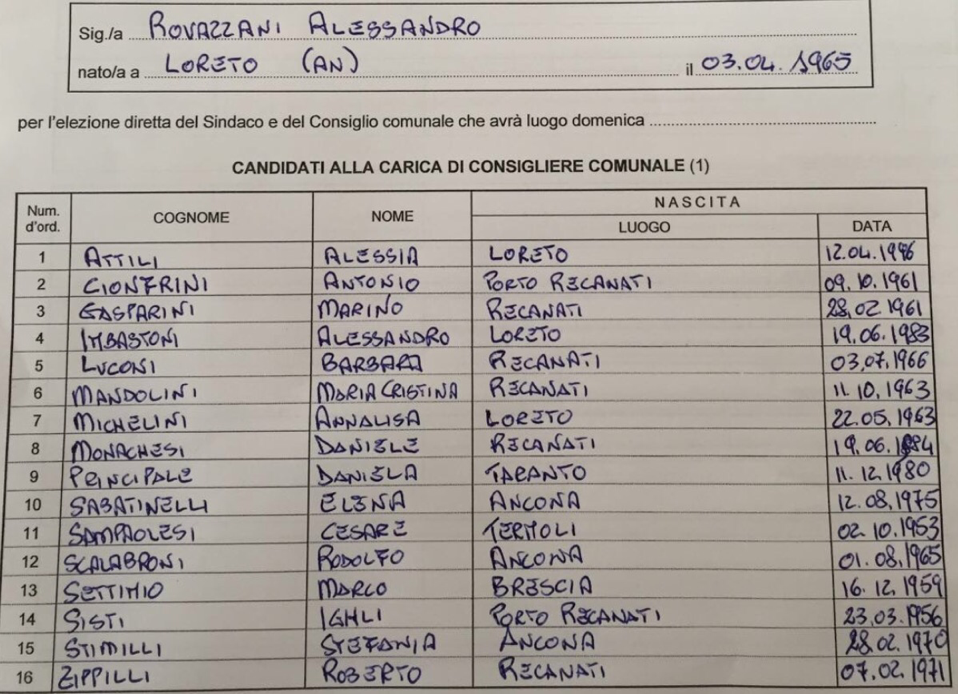 Sig./a ROVAZZANI ALESSANDRO
nato/a a LORETO (AN) il 03.04.1965
per l'elezione diretta del Sindaco e del Consiglio comunale che avrà luogo domenica
CANDIDATI ALLA CARICA DI CONSIGLIERE COMUNALE (1)
Num. d'ord. COGNOME NOME NASCITA
LUOGO DATA
1 ATTILI ALESSIA LORETO 12.04.1996
2 CIONFRINI ANTONIO PORTO RECANATI 09.10.1961
3 GASPARINI MARINO RECANATI 28.02.1961
4 IMBASTONI ALESSANDRO LORETO 19.06.1983
5 LUCONI BARBARA RECANATI 03.07.1966
6 MANDOLINI MARIA CRISTINA RECANATI 11.10.1963
7 MICHELINI ANNALISA LORETO 22.05.1963
8 MONACHESI DANIELE RECANATI 19.06.1984
9 PRINCIPALE DANIELA TARANTO 11.12.1980
10 SABATINELLI ELENA ANCONA 12.08.1975
11 SAMPAOLESI CESARE TERMOLI 02.10.1953
12 SCALABRONI RODOLFO ANCONA 01.08.1965
13 SETTIMIO MARCO BRESCIA 16.12.1959
14 SISTI IGHLI PORTO RECANATI 23.03.1956
15 STIMILLI STEFANIA ANCONA 28.02.1970
16 ZIPPILLI ROBERTO RECANATI 07.02.1971